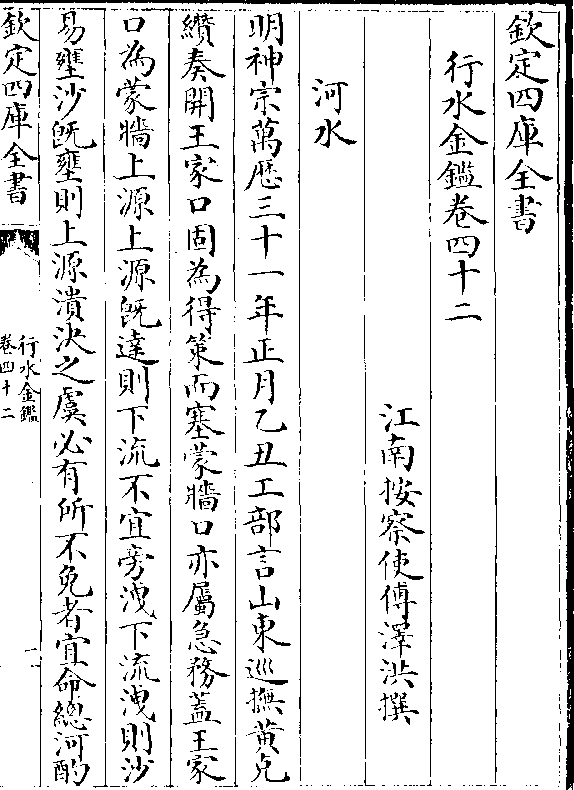 欽定四庫全書
行水金鑑卷四十二
江南按察使傅澤洪撰
河水
明神宗萬歷三十一年正月乙丑工部言山東巡撫黄克
纘奏開王家口固為得策而塞蒙牆口亦屬急務蓋王家
口為蒙牆上源上源既達則下流不宜旁洩下流洩則沙
易壅沙既壅則上源潰決之虞必有所不免者宜命總河酌
欽定四庫全書
行水金鑑
卷四十二
一